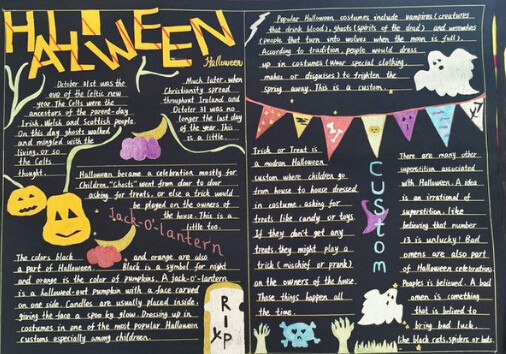 HALLOWEEN
Halloween
October 31st was the
eve of the Celtic new
year. The Celts were the
ancestors of the parent-day
Irish, Welsh and Scottish people.
On this day ghosts walked
and mingled with the
living, or so
the Celts
thought.
Much later, when
Christianity spread
throughout Ireland and
October 31 was no
longer the last day
of the year. This
is a little.
Halloween became a celebration mostly for
Children. "Ghosts" went from door to door
asking for treats, or else a trick would
be played on the owners of
the house. This is a
little too.
Jack-O'-lantern
The colors black and orange are also
a part of Halloween. Black is a symbol for night
and orange is the color of pumpkins. A jack-o'-lantern
is a hollowed-out pumpkin with a face carved
on one side. Candles are usually placed inside,
giving the face a spooky glow. Dressing up in
costumes in one of the most popular Halloween
customs especially among children.
RIP
Popular Halloween costumes include vampires (creatures
that drink blood), ghosts (spirits of the dead) and werewolves
(people that turn into wolves when the moon is full).
According to tradition, people would dress
up in costumes (wear special clothing,
makes or disguises) to frighten the
spring away. This is a custom.
Trick or Treat is
a modern Halloween
custom where children go
from house to house dressed
in costume, asking for
treats like candy or toys.
If they don't get any
treats, they might play a
trick (mischief or prank)
on the owners of the house.
These things happen all
the time.
Custom
There are many other
superstition associated
with Halloween. A idea
is an irrational of
superstition, like
believing that number
13 is unlucky! Bad
omens are also part
of Halloween celebrations.
Peoples is believed. A bad
omen is something
that is belived to
bring bad luck,
like black cats, spiders or bats.